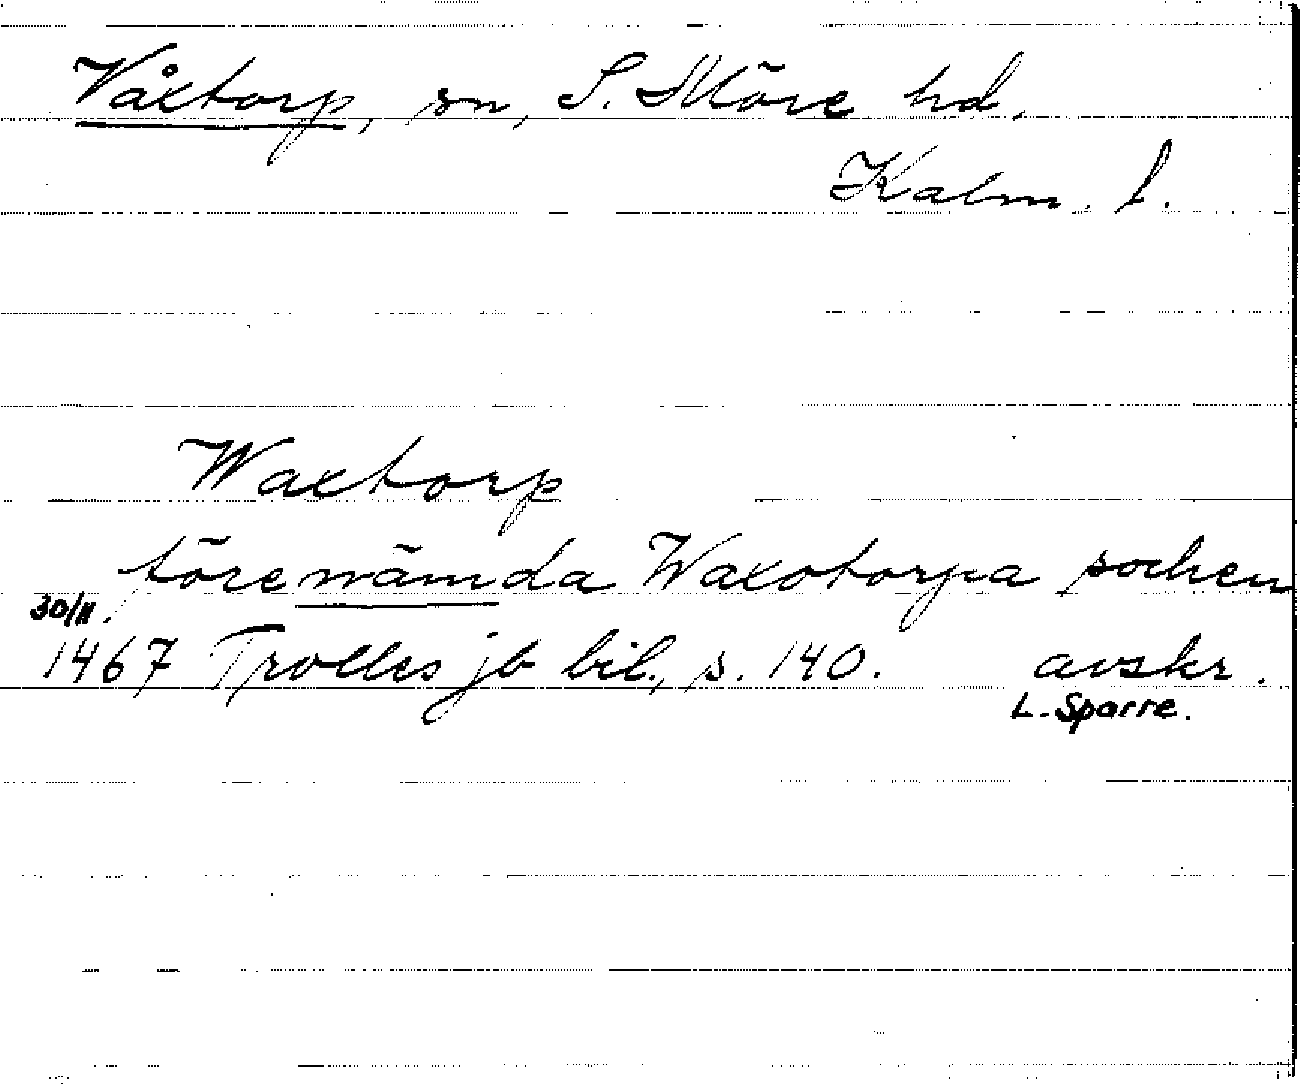 Våxtorp, sn, S. Möre hd,
Kalm. l.
Waxtorp
törenämda Waxotorpa sochen
30/11.
1467 Trolles jb bil., s. 140. avskr.
L. Sparre.